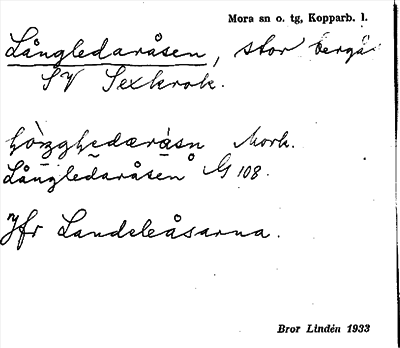 Mora sn o. tg, Kopparb. l.
Långledaråsen, stor bergås
SV Sexkrok.
Mork.
Långledaråsen G 108.
Jfr Landeleåsarna.
Bror Lindén 1933